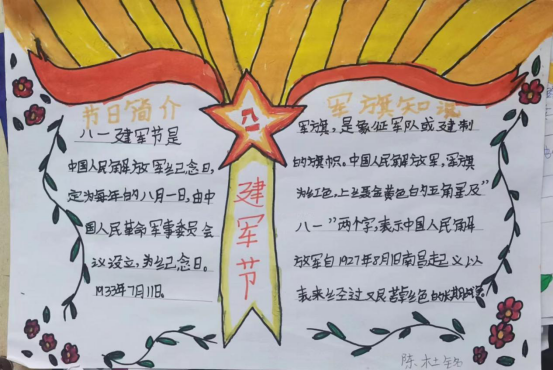 节日简介
八一建军节是
中国人民解放军纪念日,
定为每年的八月一日,由中
国人民革命军事委员会
议设立,为纪念日。
1933年7月11日。
八一
建军节
军旗知识
军旗,是象征军队或建制
的旗帜。中国人民解放军,军旗
为红色,上缀金黄色的五角星及"
八一"两个字,表示中国人民解
放军自1927年8月1日南昌起义以
来经过